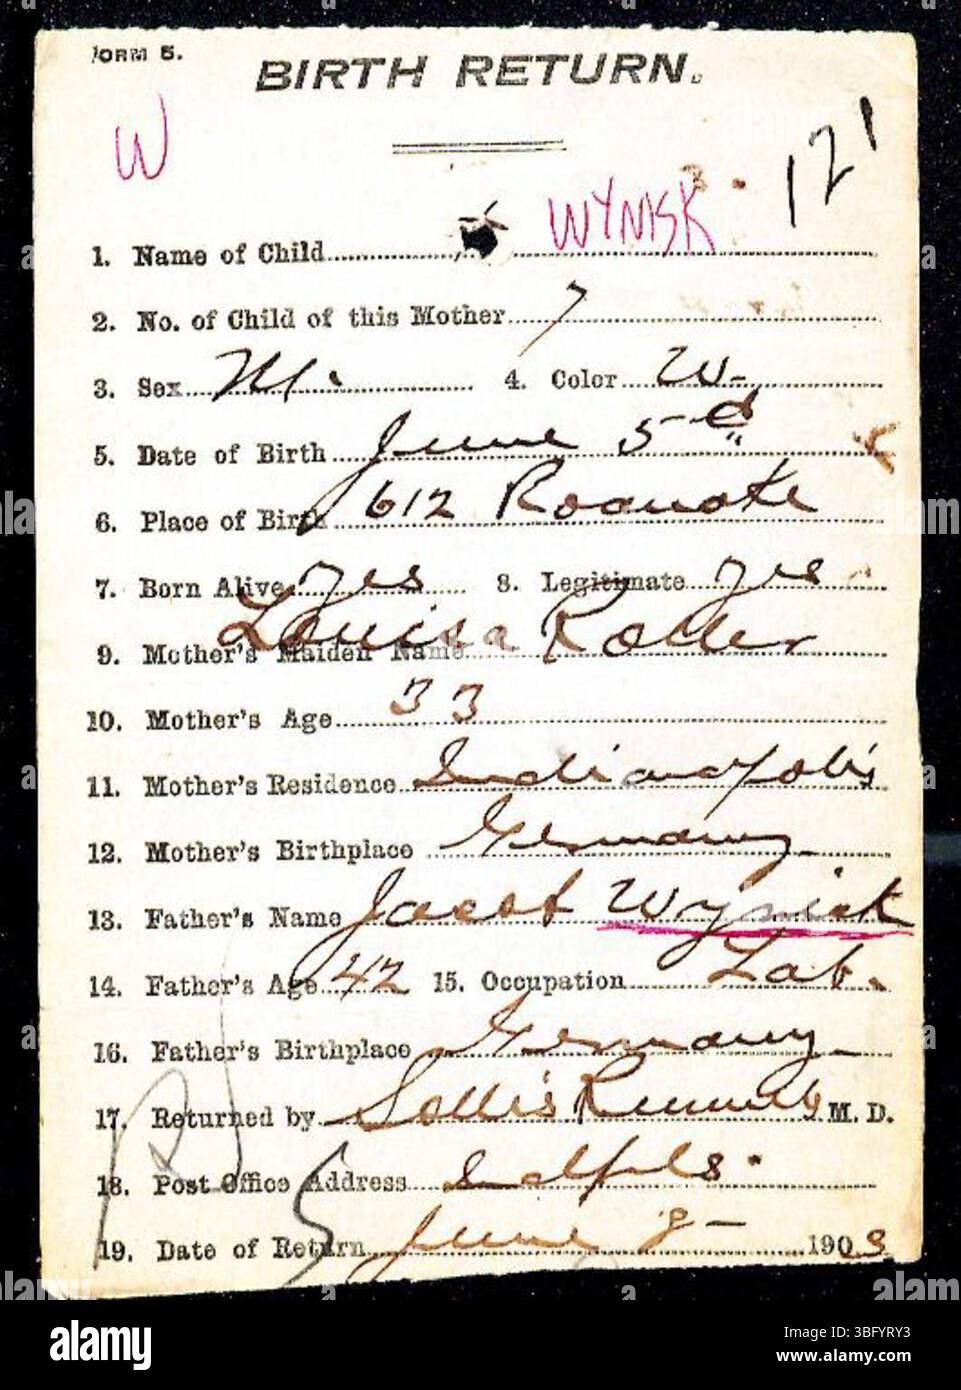 FORM 5.
BIRTH RETURN.
W
121
WYNISK
1. Name of Child
2. No. of Child of this Mother 7
3. Sex M. 4. Color W-
5. Date of Birth June 5"d
6. Place of Birth 612 Roanoke
7. Born Alive Yes 8. Legitimate Yes
9. Mother's Maiden Name Louisa Roller
10. Mother's Age 33
11. Mother's Residence Indianapolis
12. Mother's Birthplace Germany
13. Father's Name Jacob Wynisk
14. Father's Age 42 15. Occupation Lab.
16. Father's Birthplace Germany
17. Returned by M. D.
18. Post Office Address Indpls.
19. Date of Return June 8- 1903
alamy
Image ID: 3BFYRY3
www.alamy.com